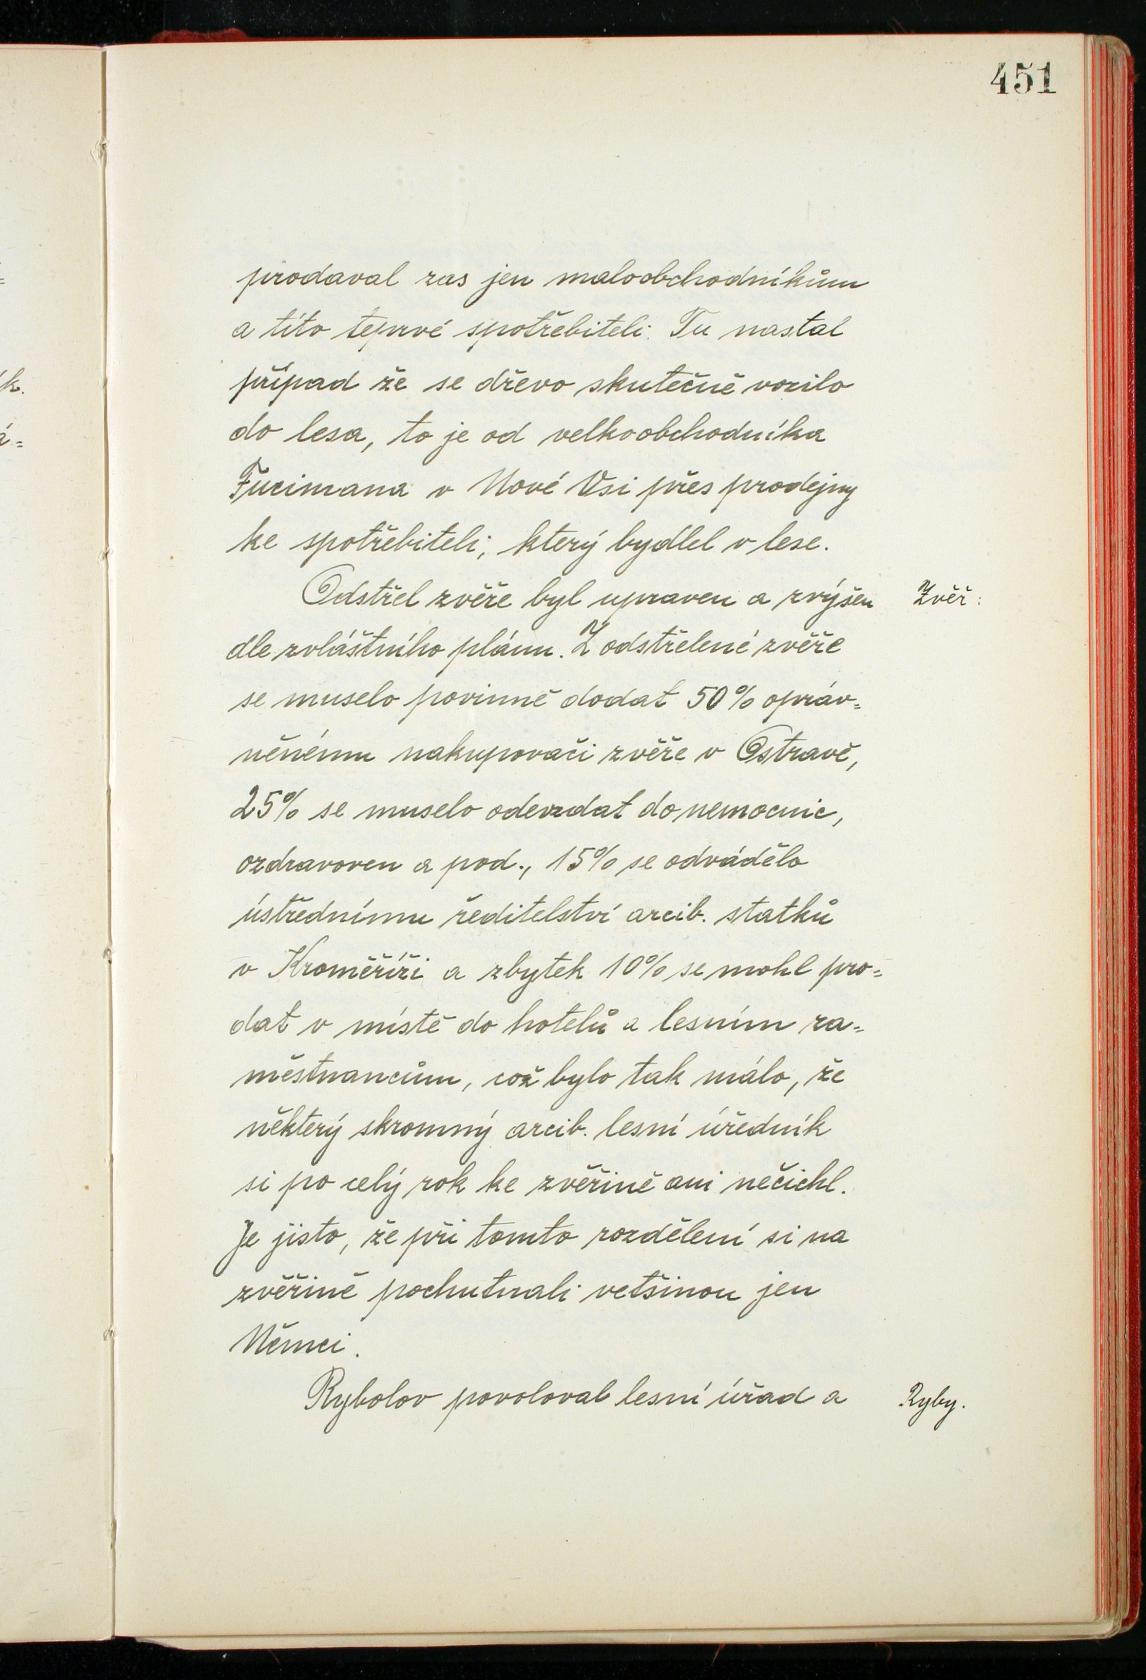 451
prodaval zas jen maloobchodníkům
a tito teprvé spotřebiteli. Tu nastal
případ že se dřevo skutečně vozilo
do lesa, to je od velkoobchodníka
v Nové Vsi přes prodejny
ke spotřebiteli, který bydlel v lese.
Odstřel zvěře byl upraven a zvýšen
Zvěř:
dle zvláštního plánu. Z odstřelené zvěře
se muselo povinně dodat 50% opráv=
něnému nakupovači zvěře v Ostravě,
25% se muselo odevzdat do nemocnic,
ozdravoven a pod., 15% se odvádělo
ústřednímu ředitelství arcib. statků
v Kroměříži a zbytek 10% se mohl pro=
dat v místě do hotelů a lesním za=
městnancům, což bylo tak málo, že
některý skromný arcib. lesní úředník
si po celý rok ke zvěřině ani nečichl.
Je jisto, že při tomto rozdělení si na
zvěřině pochutnali vetšinou jen
Němci.
Rybolov povoloval lesní úřad a
Ryby.
k.
á=